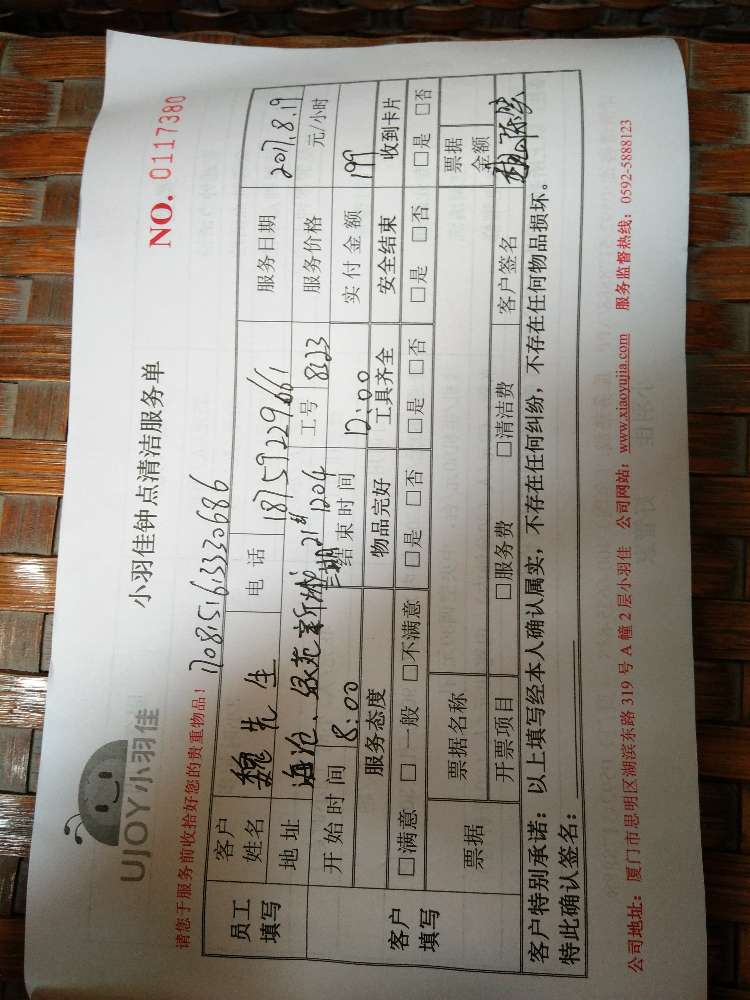 UJOY小羽佳
小羽佳钟点清洁服务单
NO. 0117380
请您于服务前收拾好您的贵重物品！
1708151633330686
员工填写 客户姓名 魏先生 电话 18759229661 服务日期 2017.8.19
地址 海沧、绿苑新城 1204 工号 8123 服务价格 元/小时
客户填写 开始时间 8:00 结束时间 12:00 实付金额 199
服务态度 物品完好 工具齐全 安全结束 收到卡片
□满意 □一般 □不满意 □是 □否 □是 □否 □是 □否 □是 □否
票据 票据名称 票据金额
开票项目 □服务费 □清洁费 客户签名
客户特别承诺：以上填写经本人确认属实，不存在任何纠纷，不存在任何物品损坏。
特此确认签名：
公司地址：厦门市思明区湖滨东路 319 号 A 幢 2 层小羽佳 公司网站：www.xiaoyujia.com 服务监督热线：0592-5888123